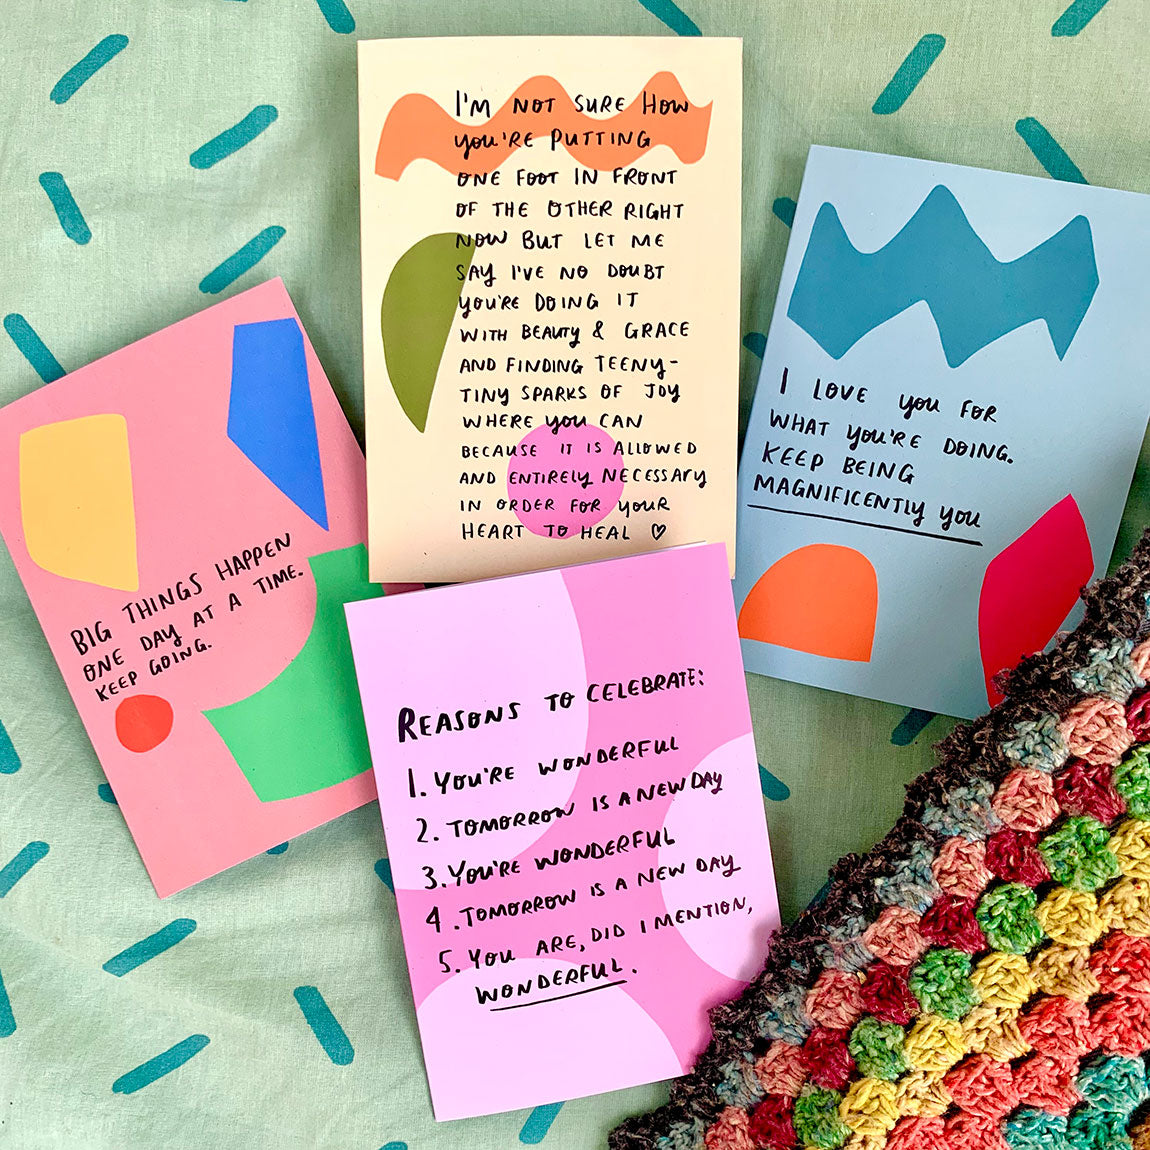 I'M NOT SURE HOW
YOU'RE PUTTING
ONE FOOT IN FRONT
OF THE OTHER RIGHT
NOW BUT LET ME
SAY I'VE NO DOUBT
YOU'RE DOING IT
WITH BEAUTY & GRACE
AND FINDING TEENY-
TINY SPARKS OF JOY
WHERE YOU CAN
BECAUSE IT IS ALLOWED
AND ENTIRELY NECESSARY
IN ORDER FOR YOUR
HEART TO HEAL ♡
I LOVE YOU FOR
WHAT YOU'RE DOING.
KEEP BEING
MAGNIFICENTLY YOU
BIG THINGS HAPPEN
ONE DAY AT A TIME.
KEEP GOING.
REASONS TO CELEBRATE:
1. YOU'RE WONDERFUL
2. TOMORROW IS A NEW DAY
3. YOU'RE WONDERFUL
4. TOMORROW IS A NEW DAY
5. YOU ARE, DID I MENTION,
WONDERFUL.